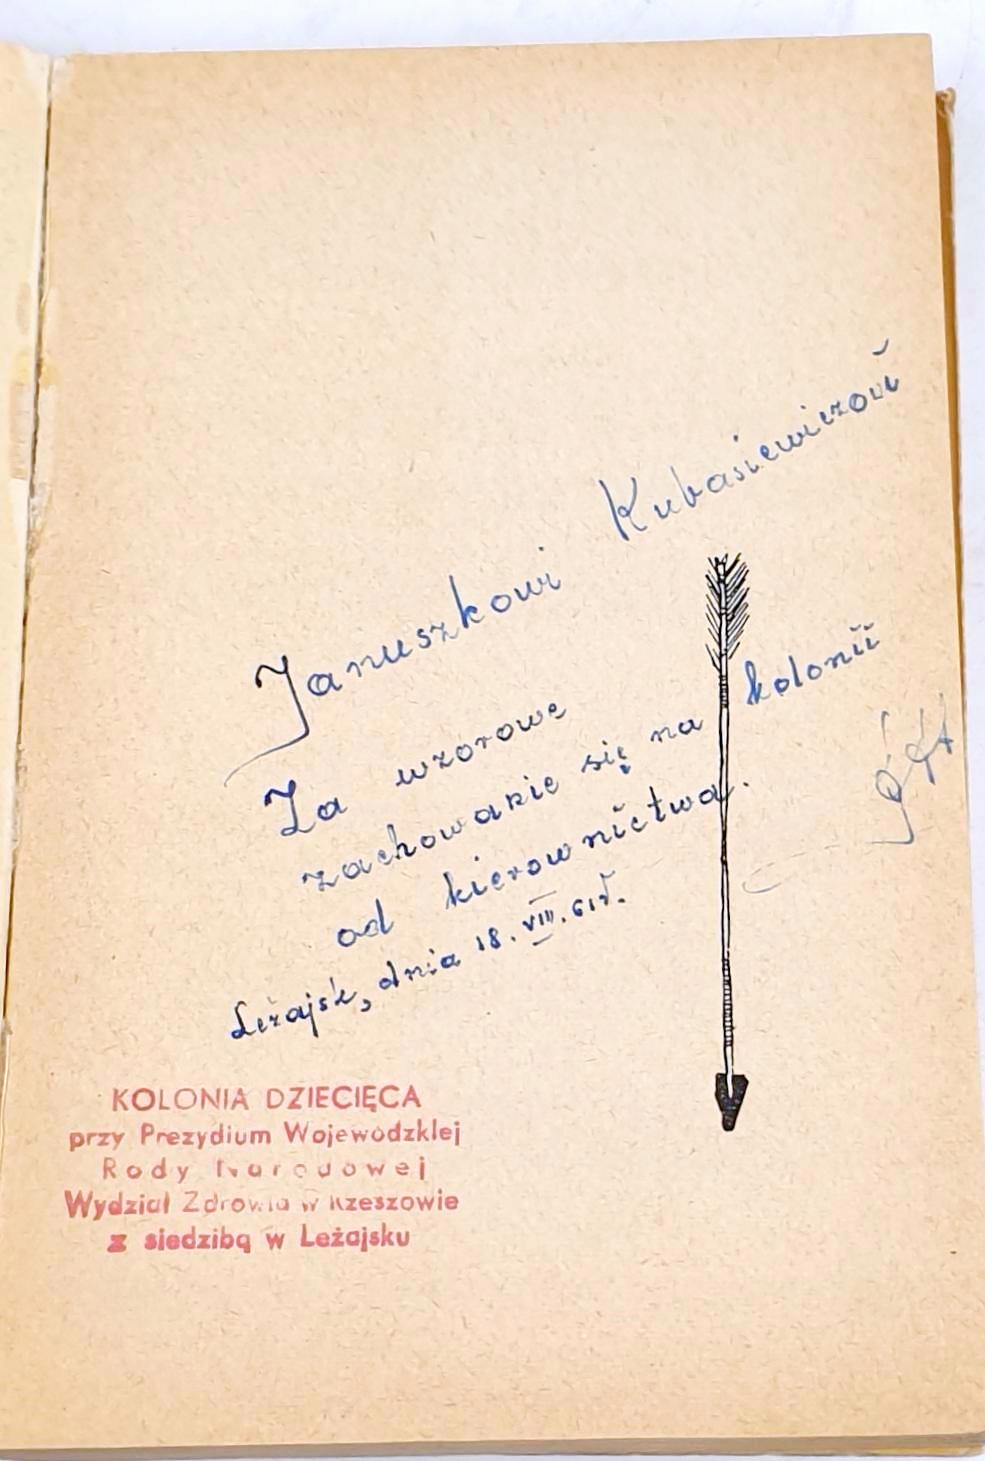 Januszkowi Kubasiewiczowi
Za wzorowe
zachowanie się na kolonii
od kierownictwa.
Leżajsk, dnia 18. VIII. 61r.
KOLONIA DZIECIĘCA
przy Prezydium Wojewódzkiej
Rady Narodowej
Wydział Zdrowia w Rzeszowie
z siedzibą w Leżajsku